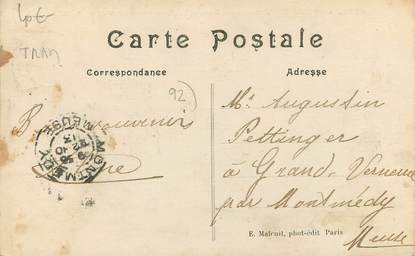 Carte Postale
Correspondance
Adresse
TRAM
92
Mr Augustin
Pettinger
à Grand Verneuil
par Montmédy
Meuse
souvenirs
MONTMEDY
MEUSE
E. Malcuit, phot-édit Paris